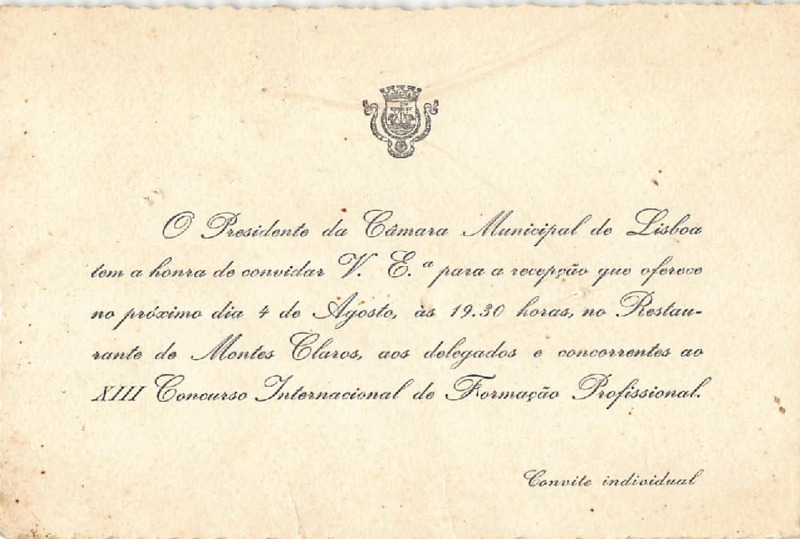 O Presidente da Câmara Municipal de Lisboa
tem a honra de convidar V. E.ª para a recepção que oferece
no próximo dia 4 de Agosto, às 19.30 horas, no Restau-
rante de Montes Claros, aos delegados e concorrentes ao
XIII Concurso Internacional de Formação Profissional.
Convite individual